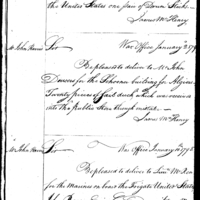 the United States one pair of Down Sinks
James McHenry
Mr John Harris
Sir
War Office January 179
Be pleased to deliver to Mr John
for the Schooner building for Algiers
Twenty pieces of duck which was received
into the Public Store through
James McHenry
Mr John Harris
Sir
War Office January 1798
Be pleased to deliver to Lieut. McRea
for the Marines on board the Frigate United States